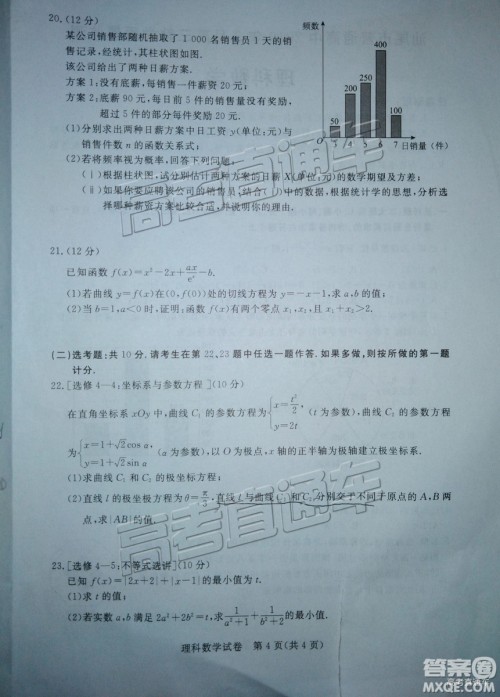 20.(12分)
某公司销售部随机抽取了1 000名销售员1天的销
售记录,经统计,其柱状图如图.
该公司给出了两种日薪方案.
方案1:没有底薪,每销售一件薪资20元;
方案2:底薪90元,每日前5件的销售量没有奖励,
超过5件的部分每件奖励20元.
(1)分别求出两种日薪方案中日工资y(单位:元)与
销售件数n的函数关系式;
(2)若将频率视为概率,回答下列问题:
(ⅰ)根据柱状图,试分别估计两种方案的日薪X(单位:元)的数学期望及方差;
(ⅱ)如果你要应聘该公司的销售员,结合(ⅰ)中的数据,根据统计学的思想,分析选
择哪种薪资方案比较合适,并说明你的理由.
频数
400
200
100
50
3 4 5 6 7 日销量(件)
21.(12分)
已知函数f(x)=x²-2x+ax/eˣ-b.
(1)若曲线y=f(x)在(0,f(0))处的切线方程为y=-x,求a,b的值;
(2)当b=1,证明:f(x)有两个零点x₁,x₂,且x₁+x₂>2.
(二)选考题:共10分.请考生在第22,23题中任选一题作答.如果多做,则按所做的第一题
计分.
22.[选修4—4:坐标系与参数方程](10分)
在直角坐标系xOy中,曲线C₁的参数方程为{x=t²/2, y=2t (t为参数),曲线C₂的参数方程
为{x=1+√2cos α, y=1+√2sin α (α为参数),以O为极点,x轴的正半轴为极轴建立极坐标系.
(1)求曲线C₁和C₂的极坐标方程;
(2)直线l的极坐标方程为θ=π/3,直线l与曲线C₁和C₂分别交于不同于原点的A,B两
点,求|AB|的值.
23.[选修4—5:不等式选讲](10分)
已知f(x)=|2x+2|+|x-1|的最小值为t.
(1)求t的值;
(2)若实数a,b满足2a²+2b²=t,求1/(a²+1)+1/(b²+2)的最小值.
理科数学试卷 第4页(共4页)
高考直通车
高考直通车
答案圈
MXQE.COM